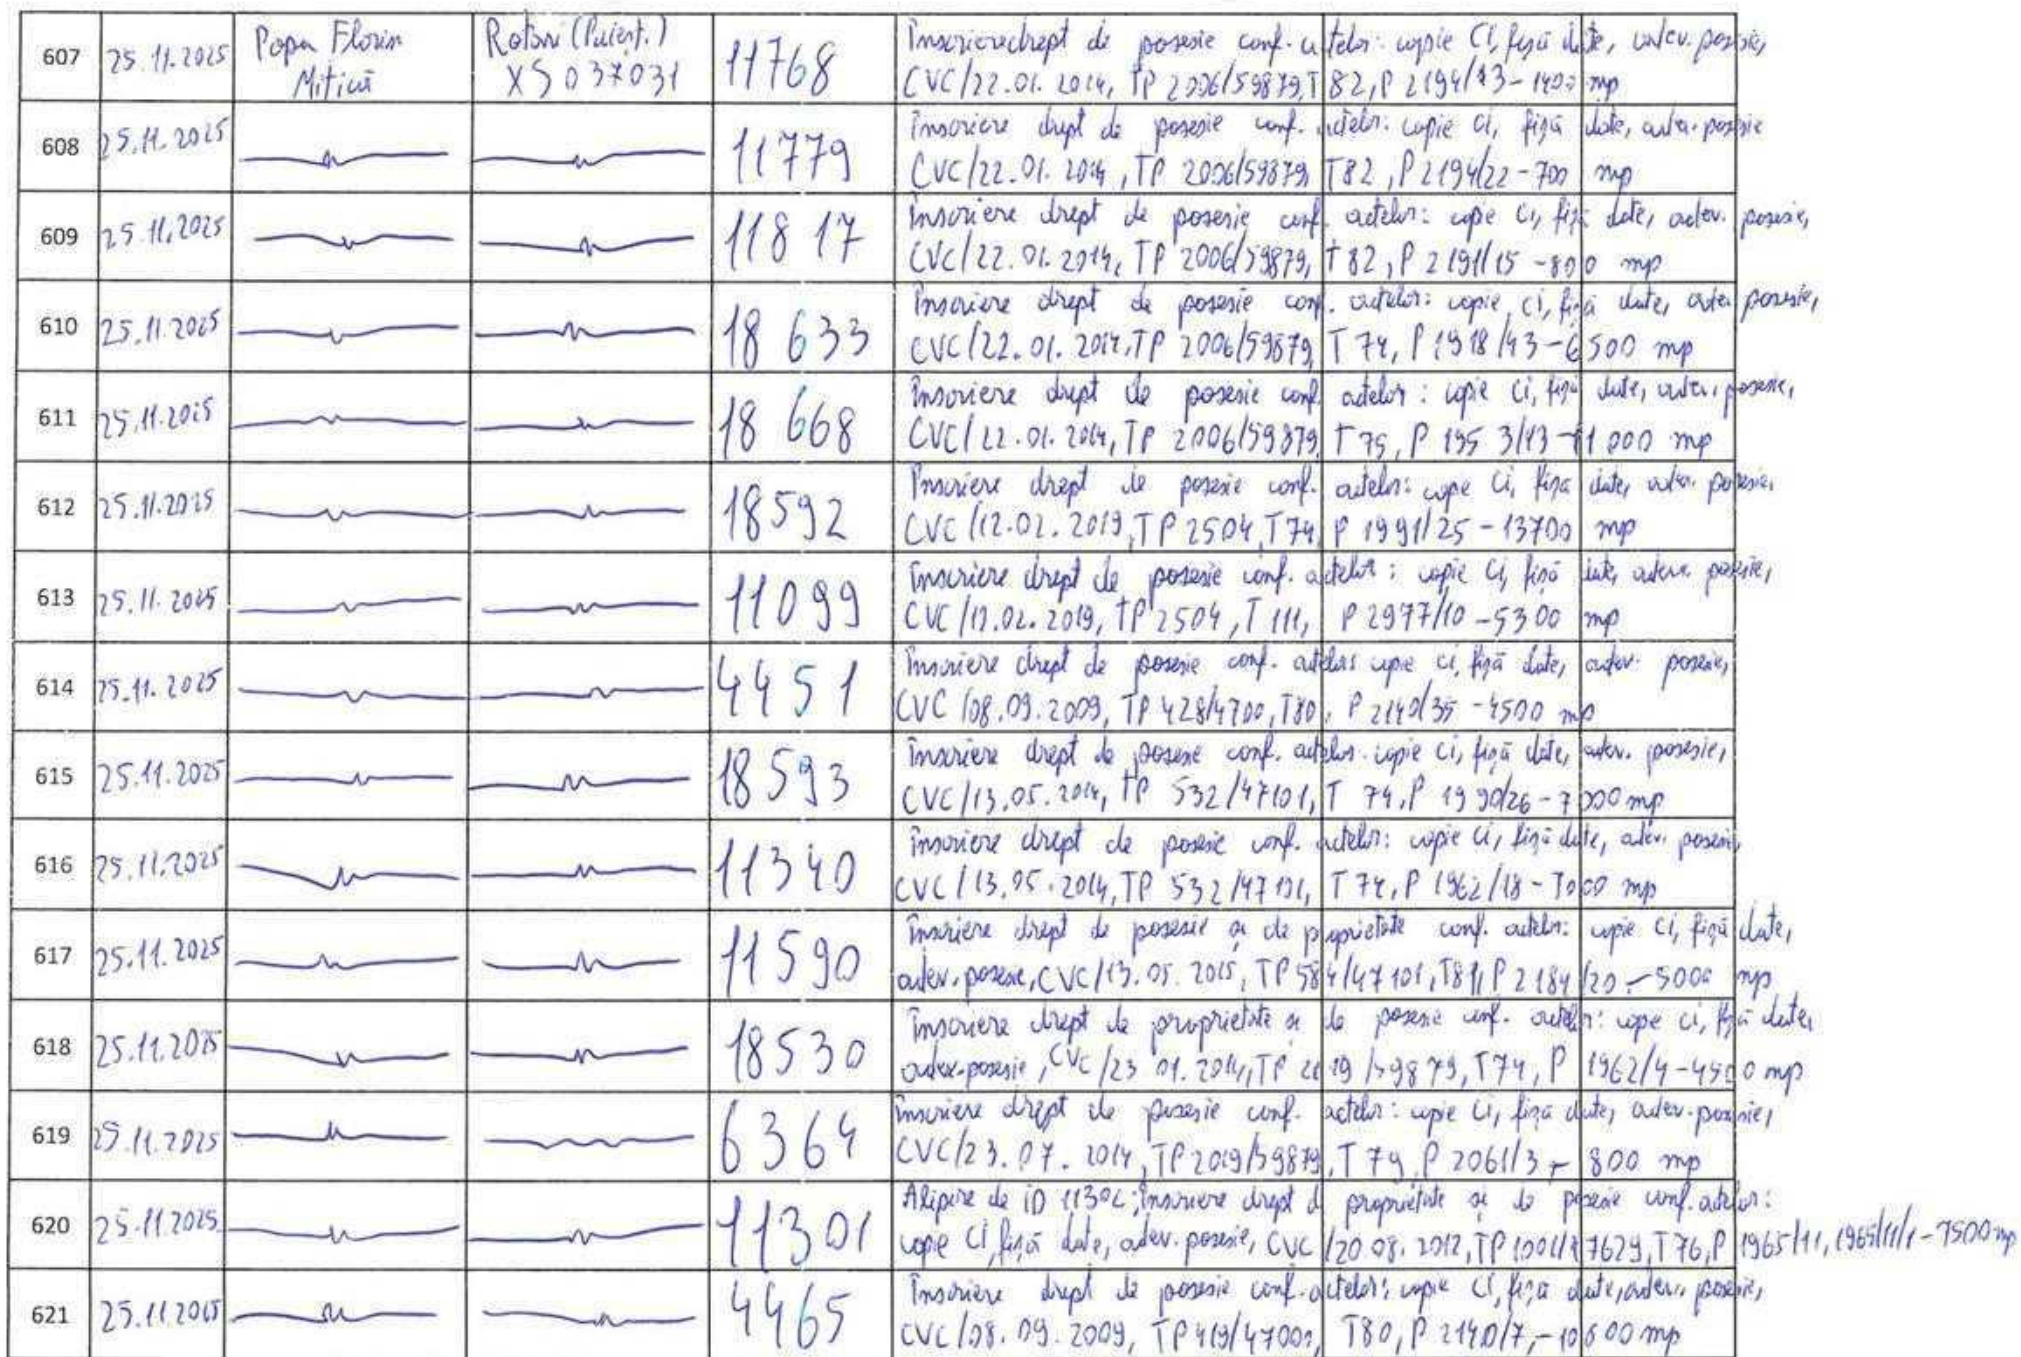 607 25.11.2025 Popa Florin Rotari (Puieșt.) 11768 Înscriere drept de posesie conf. actelor: copie CI, fișă date, adev. posesie,
Mitică XS 037031 CVC/22.01.2014, TP 2006/59879, T 82, P 2194/13 - 1400 mp
608 25.11.2025 11779 Înscriere drept de posesie conf. actelor: copie CI, fișă date, adev. posesie
CVC/22.01.2014, TP 2006/59879, T82, P 2194/22 - 700 mp
609 25.11.2025 11817 Înscriere drept de posesie conf. actelor: copie CI, fișă date, adev. posesie,
CVC/22.01.2014, TP 2006/59879, T 82, P 2191/15 - 800 mp
610 25.11.2025 18633 Înscriere drept de posesie conf. actelor: copie CI, fișă date, adev. posesie,
CVC/22.01.2014, TP 2006/59879, T 74, P 1918/43 - 6500 mp
611 25.11.2025 18668 Înscriere drept de posesie conf. actelor: copie CI, fișă date, adev. posesie,
CVC/22.01.2014, TP 2006/59879, T 75, P 1953/13 - 11000 mp
612 25.11.2025 18592 Înscriere drept de posesie conf. actelor: copie CI, fișă date, adev. posesie,
CVC/12.02.2019, TP 2504, T74, P 1991/25 - 13700 mp
613 25.11.2025 11099 Înscriere drept de posesie conf. actelor: copie CI, fișă date, adev. posesie,
CVC/12.02.2019, TP 2504, T 111, P 2977/10 - 5300 mp
614 25.11.2025 4451 Înscriere drept de posesie conf. actelor: copie CI, fișă date, adev. posesie,
CVC/08.09.2009, TP 428/4700, T80, P 2140/35 - 4500 mp
615 25.11.2025 18593 Înscriere drept de posesie conf. actelor: copie CI, fișă date, adev. posesie,
CVC/13.05.2014, TP 532/47101, T 74, P 1990/26 - 7000 mp
616 25.11.2025 11340 Înscriere drept de posesie conf. actelor: copie CI, fișă date, adev. posesie,
CVC/13.05.2014, TP 532/47101, T 74, P 1962/18 - 7000 mp
617 25.11.2025 11590 Înscriere drept de posesie și de proprietate conf. actelor: copie CI, fișă date,
adev. posesie, CVC/13.05.2015, TP 584/47101, T81, P 2184/20 - 5000 mp
618 25.11.2025 18530 Înscriere drept de proprietate și de posesie conf. actelor: copie CI, fișă date,
adev. posesie, CVC/23.01.2014, TP 2019/59879, T74, P 1962/4 - 4500 mp
619 25.11.2025 6364 Înscriere drept de posesie conf. actelor: copie CI, fișă date, adev. posesie,
CVC/23.07.2014, TP 2019/59879, T 79, P 2061/3 - 800 mp
620 25.11.2025 11301 Alipire de ID 11302; Înscriere drept d proprietate și de posesie conf. actelor:
copie CI, fișă date, adev. posesie, CVC/20.08.2012, T76, P 1965/11, 1965/11/1 - 7500 mp
621 25.11.2025 4465 Înscriere drept de posesie conf. actelor: copie CI, fișă date, adev. posesie,
CVC/08.09.2009, TP 419/47002, T80, P 2140/7, - 10600 mp